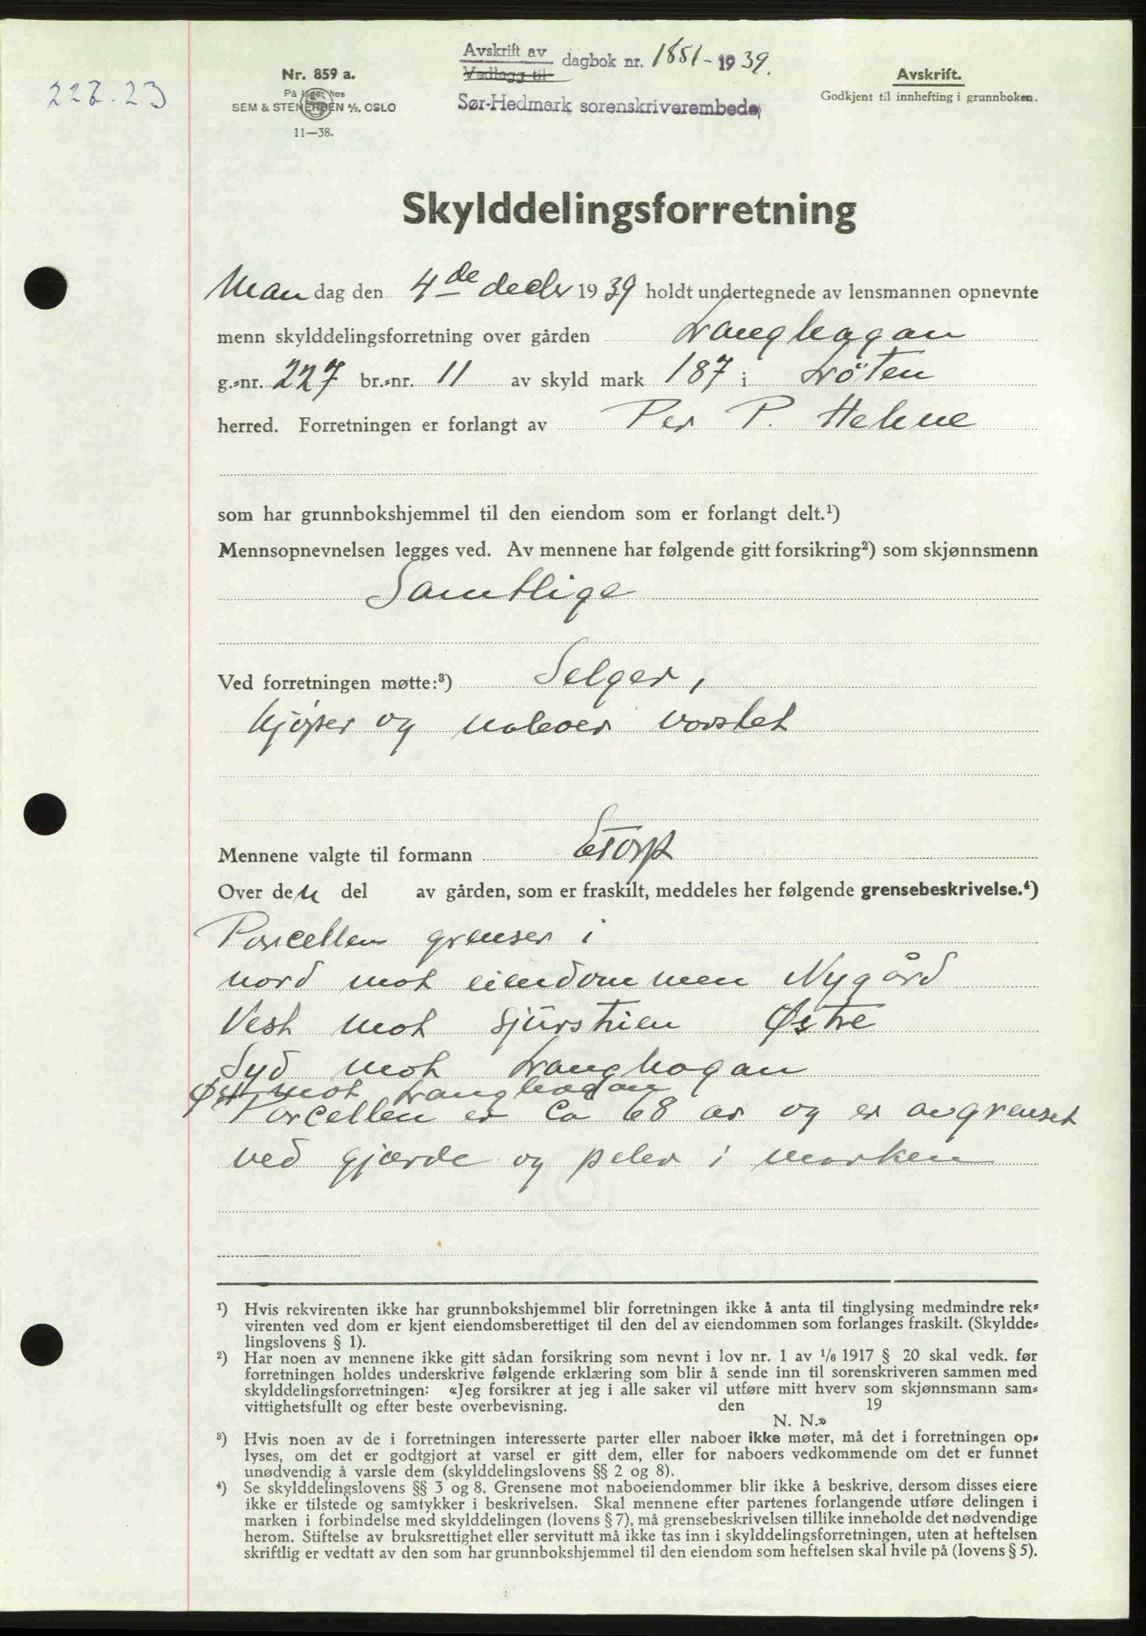 227.23
Nr. 859 a.
På lager hos
SEM & STENERSEN A/S. OSLO
11—38.
Avskrift av
Vedlegg til
dagbok nr. 1851-1939.
Sør-Hedmark sorenskriverembede
Avskrift.
Godkjent til innhefting i grunnboken.
Skylddelingsforretning
Man dag den 4de decbr 1939 holdt undertegnede av lensmannen opnevnte
menn skylddelingsforretning over gården Langhagan
g.-nr. 227 br.-nr. 11 av skyld mark 187 i Løten
herred. Forretningen er forlangt av Per P. Helme
som har grunnbokshjemmel til den eiendom som er forlangt delt.¹)
Mennsopnevnelsen legges ved. Av mennene har følgende gitt forsikring²) som skjønnsmenn
Samtlige
Ved forretningen møtte:³) Selger,
kjøper og naboer varslet
Mennene valgte til formann Etorp
Over den del av gården, som er fraskilt, meddeles her følgende grensebeskrivelse.⁴)
Parcellen grenser i
nord mot eiendommen Nygård
Vest mot Sjurstuen Østre
Syd mot Langhagan
Øst mot Langhagan
Parcellen er ca 68 ar og er avgrenset
ved gjærde og peler i marken
¹) Hvis rekvirenten ikke har grunnbokshjemmel blir forretningen ikke å anta til tinglysing medmindre rek-
virenten ved dom er kjent eiendomsberettiget til den del av eiendommen som forlanges fraskilt. (Skyldde-
lingslovens § 1).
²) Har noen av mennene ikke gitt sådan forsikring som nevnt i lov nr. 1 av 1/6 1917 § 20 skal vedk. før
forretningen holdes underskrive følgende erklæring som blir å sende inn til sorenskriveren sammen med
skylddelingsforretningen: «Jeg forsikrer at jeg i alle saker vil utføre mitt hverv som skjønnsmann sam-
vittighetsfullt og efter beste overbevisning. den 19
N. N.»
³) Hvis noen av de i forretningen interesserte parter eller naboer ikke møter, må det i forretningen op-
lyses, om det er godtgjort at varsel er gitt dem, eller for naboers vedkommende om det er funnet
unødvendig å varsle dem (skylddelingslovens §§ 2 og 8).
⁴) Se skylddelingslovens §§ 3 og 8. Grensene mot naboeiendommer blir ikke å beskrive, dersom disses eiere
ikke er tilstede og samtykker i beskrivelsen. Skal mennene efter partenes forlangende utføre delingen i
marken i forbindelse med skylddelingen (lovens § 7), må grensebeskrivelsen tillike inneholde det nødvendige
herom. Stiftelse av bruksrettighet eller servitutt må ikke tas inn i skylddelingsforretningen, uten at heftelsen
skriftlig er vedtatt av den som har grunnbokshjemmel til den eiendom som heftelsen skal hvile på (lovens § 5).